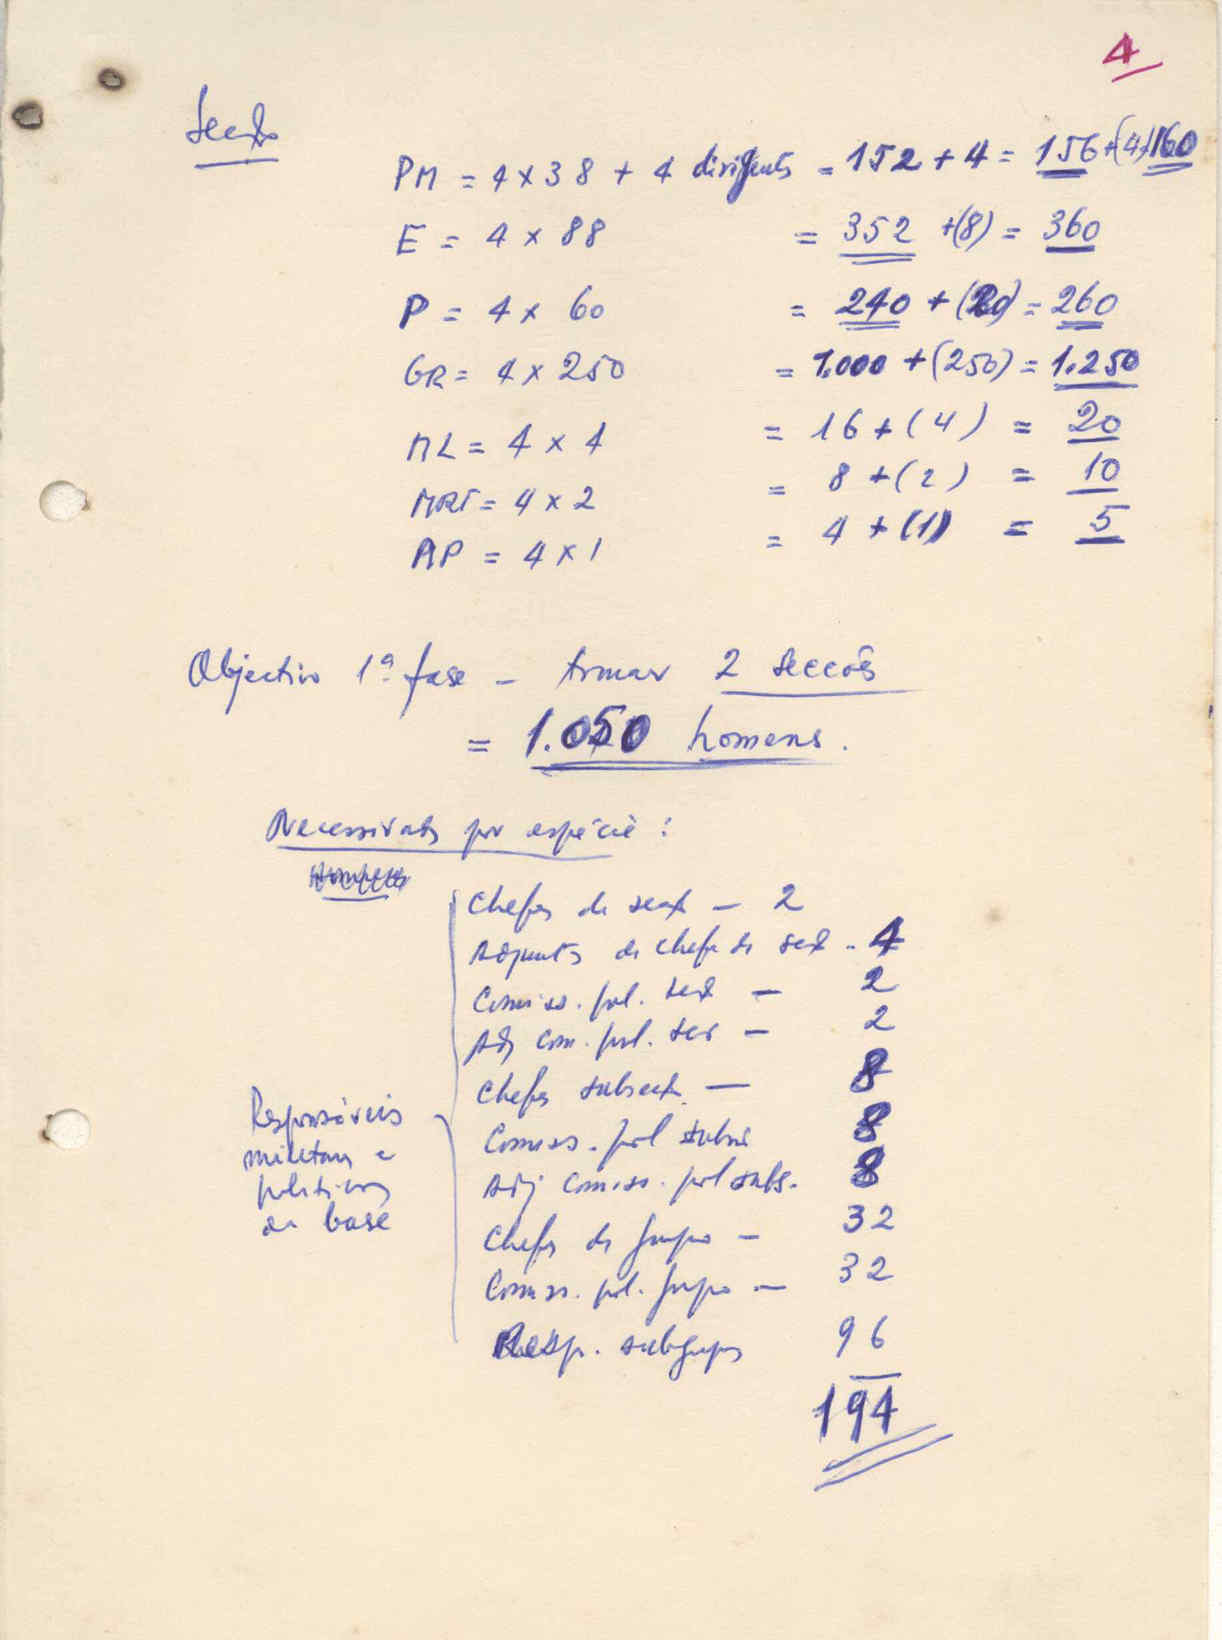 4
Secção
PM = 4 x 38 + 4 dirigents = 152 + 4 = 156 + (4) 160
E = 4 x 88 = 352 + (8) = 360
P = 4 x 60 = 240 + (20) = 260
GR = 4 x 250 = 1.000 + (250) = 1.250
ML = 4 x 4 = 16 + (4) = 20
MRT = 4 x 2 = 8 + (2) = 10
AP = 4 x 1 = 4 + (1) = 5
Objectivo 1ª fase – armar 2 secções
= 1.050 homens.
Necessidades por espécie :
Chefes de secç – 2
Adjuntos de chefe de secç – 4
Comiss. pol. secç – 2
Adj com. pol. sec – 2
Chefes subsecç. — 8
Comiss. pol subs 8
Adj comiss. pol subs. 8
Chefes de grupo – 32
Comiss. pol. grupo – 32
Resp. subgrupos 96
194
Responsáveis
militares e
politicos
de base